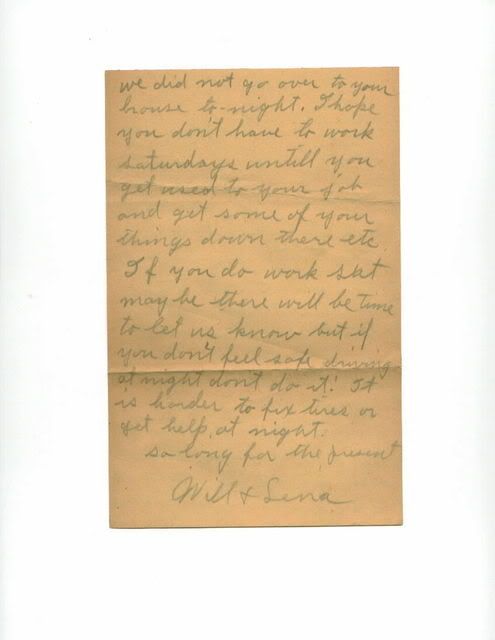 we did not go over to your
house to-night. I hope
you don't have to work
saturdays untill you
get used to your job
and get some of your
things down there etc
If you do work sat
may be there will be time
to let us know but if
you don't feel safe driving
at night don't do it! It
is harder to fix tires or
get help at night.
so long for the present
Will & Lena